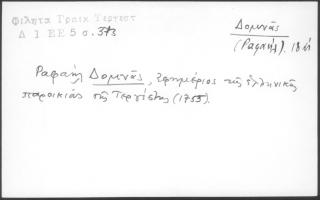 Φίλητα Γραικ Τεργεστ
Δ 1 ΕΕ 5 σ. 373
Δομνᾶς
(Ραφαήλ). 18 αἰ
Ραφαήλ Δομνᾶς, ἐφημέριος τῆς ἑλληνικῆς
παροικίας τῆς Τεργέστης (1753).